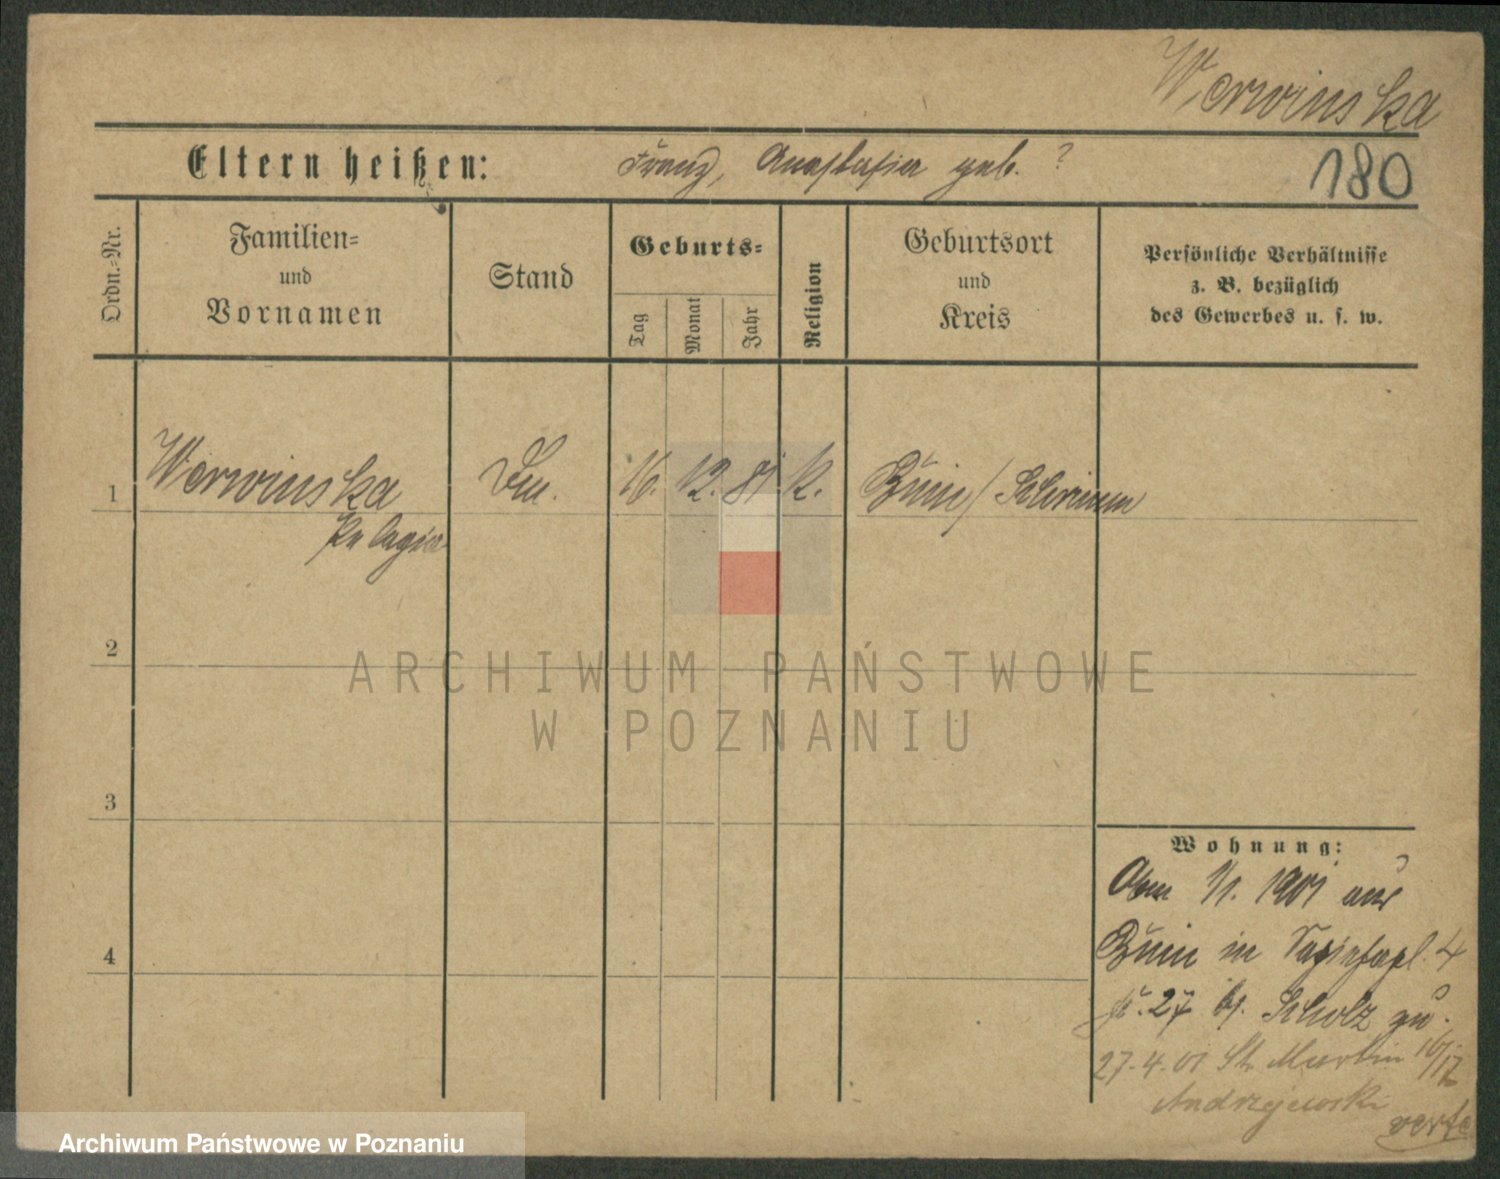 Werwinska
Eltern heißen: Franz, Anastasia geb. ?
180
Ordn.-Nr.
Familien-
und
Vornamen
Stand
Geburts-
Tag
Monat
Jahr
Religion
Geburtsort
und
Kreis
Persönliche Verhältnisse
z. B. bezüglich
des Gewerbes u. s. w.
1 Werwinska 16. 12. 81. k. Schrimm
Pelagia
2
ARCHIWUM PAŃSTWOWE
W POZNANIU
3
4
Wohnung:
Am 1/1. 1901 aus
in 4
27 b/. Scholz zu.
27.4.01 St. Martin 16/17
Andrzejewski
verte
Archiwum Państwowe w Poznaniu